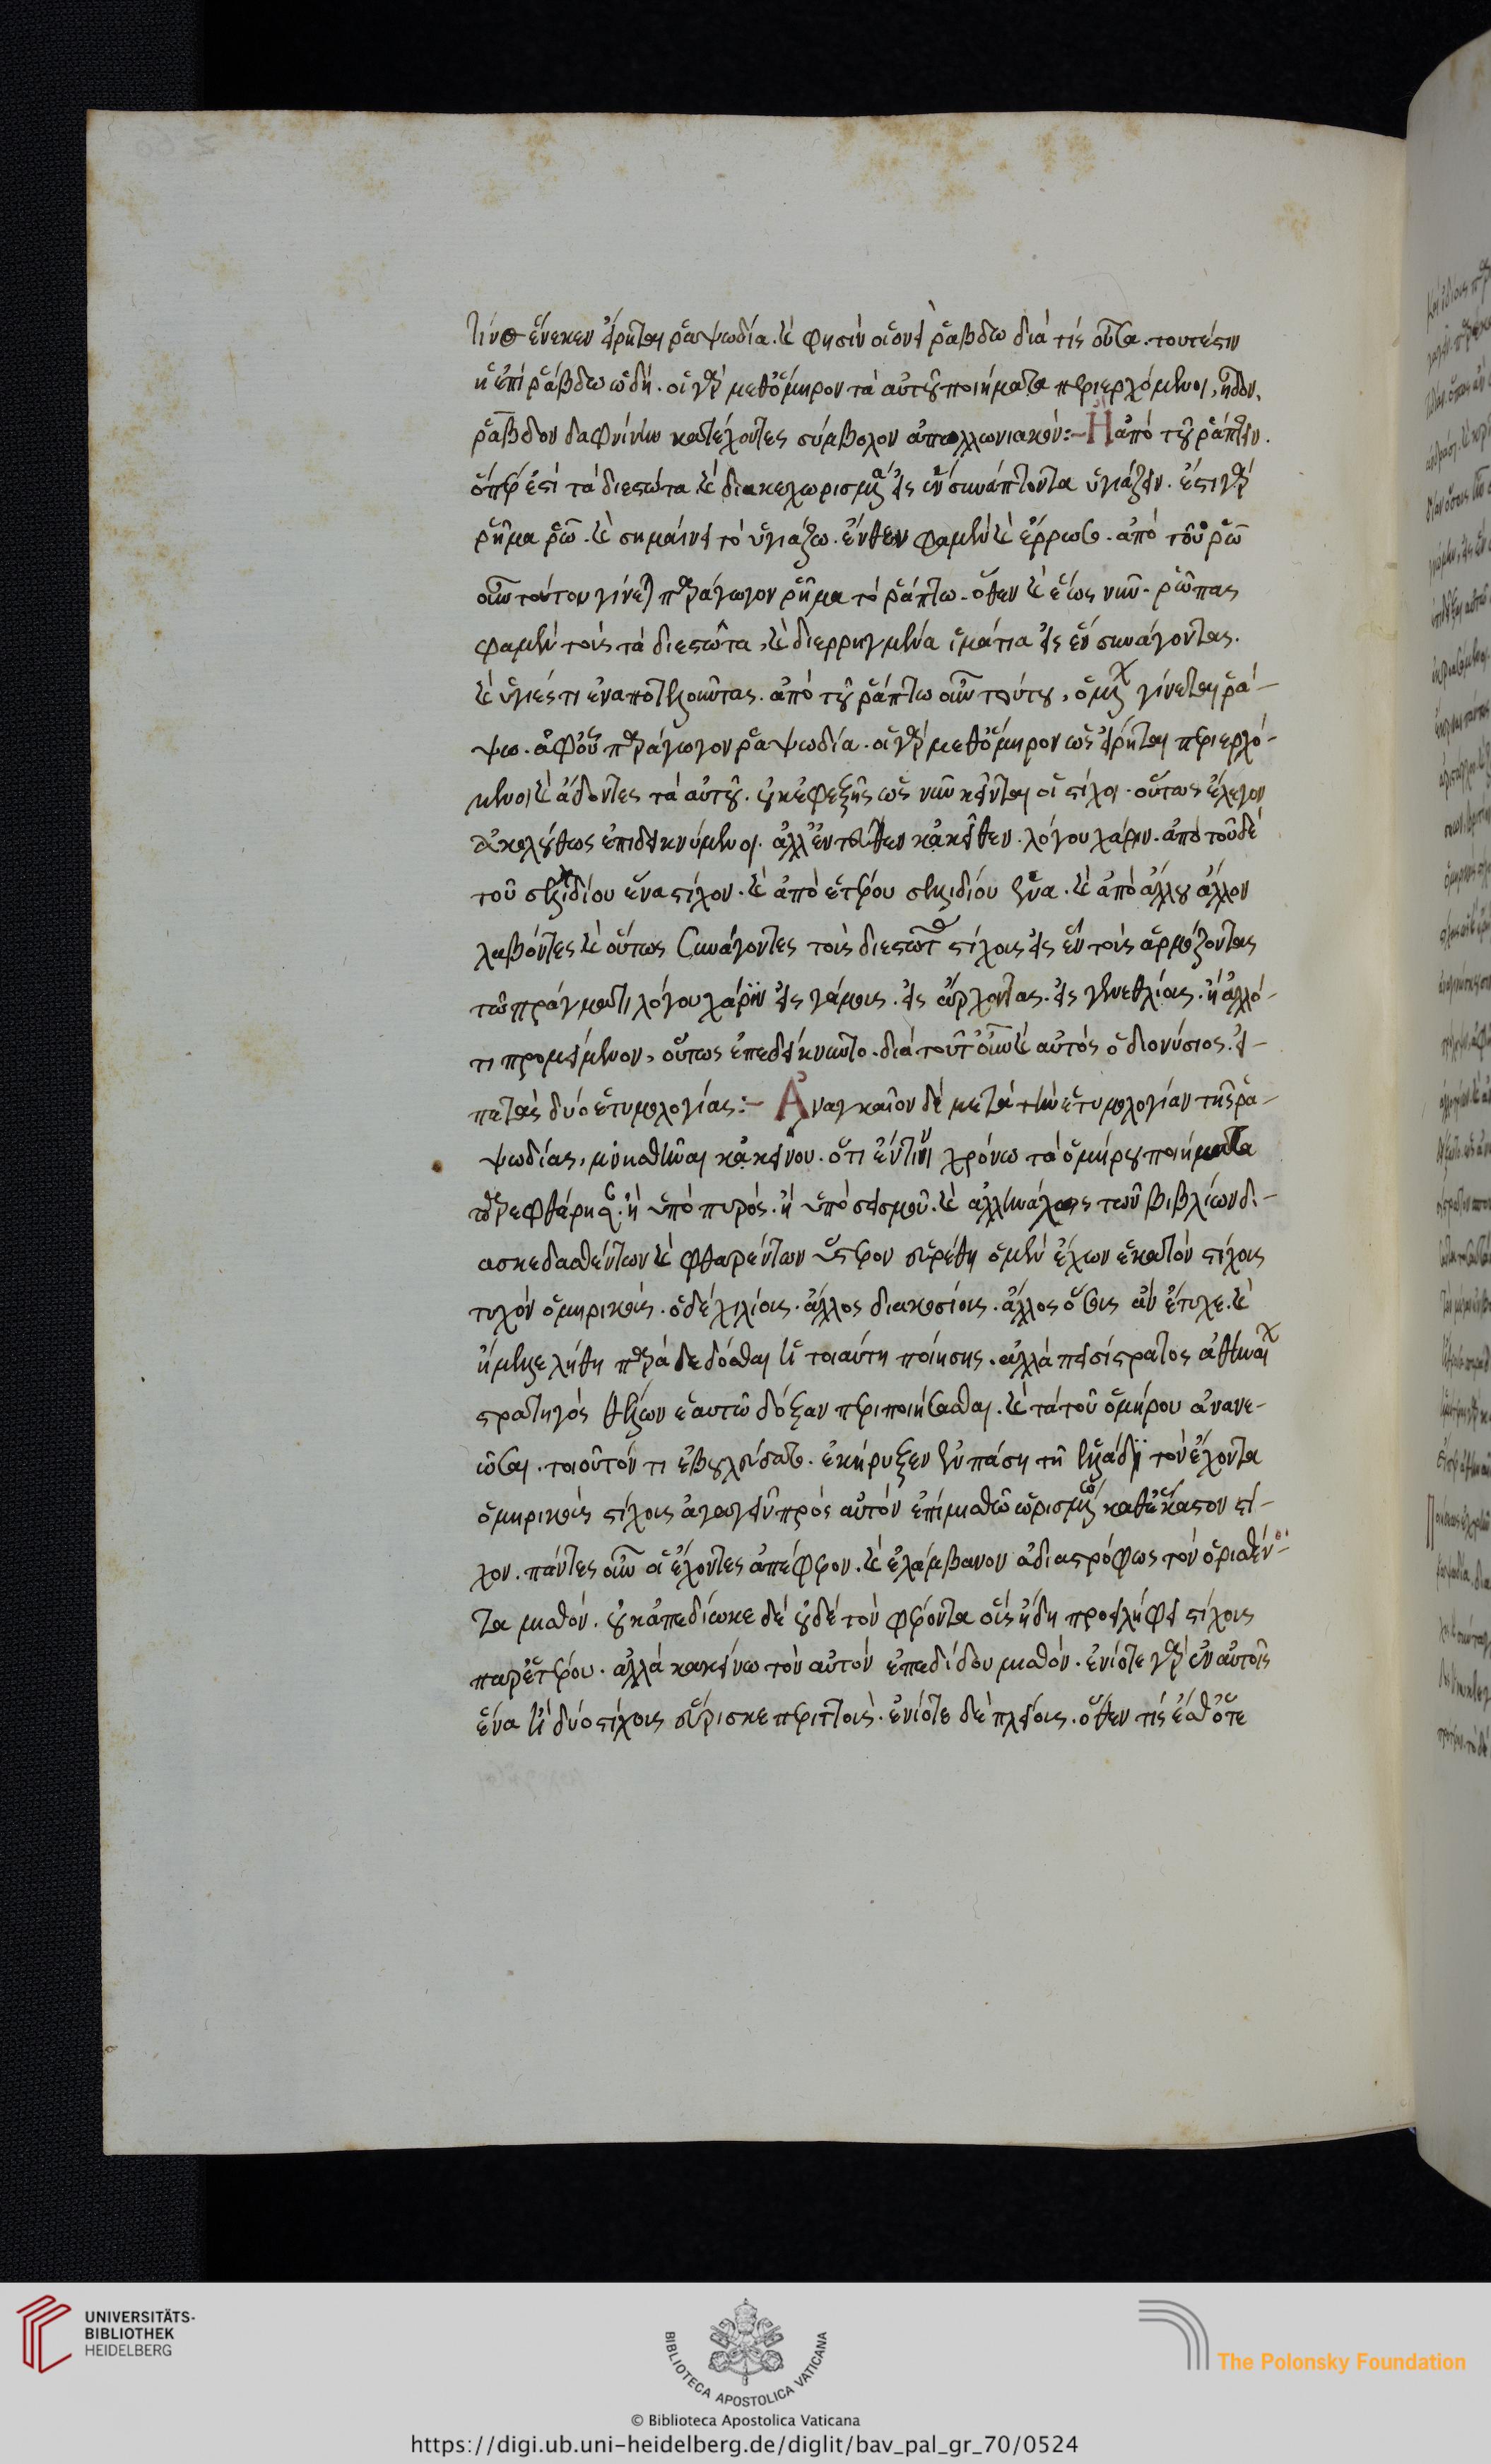 τίνος ἕνεκεν εἴρηται ῥαψωδία. καὶ φησὶν οἱονεὶ ῥάβδω διά τίς οὖσα. τουτέστιν
ἡ ἐπὶ ῥάβδω ὠδή. οἱ γὰρ μεθ' ὅμηρον τὰ αὐτοῦ ποιήματα περιερχόμενοι, ἦδον,
ῥάβδον δαφνίνην κατέχοντες σύμβολον ἀπολλωνιακόν:- Ἢ ἀπὸ τοῦ ῥάπτειν.
ὅπερ ἐστὶ τὰ διεστῶτα καὶ διακεχωρισμένα εἰς ἓν συνάπτοντα ὑγιάζειν. ἔστι γὰρ
ῥῆμα ῥῶ. καὶ σημαίνει τὸ ὑγιάζω. ἔνθεν φαμὲν καὶ ἔρρωσο. ἀπὸ τοῦ ῥῶ
οὖν τούτου γίνεται παράγωγον ῥῆμα τὸ ῥάπτω. ὅθεν καὶ ἕως νῦν. ῥῶπας
φαμὲν τοὺς τὰ διεστῶτα, καὶ διερρηγμένα ἱμάτια εἰς ἓν συνάγοντας.
καὶ ὑγιές τι ἐναποτελοῦντας. ἀπὸ τοῦ ῥάπτω οὖν τούτου, ὁ μέλλων γίνεται ῥά-
ψω. ἀφ' οὗ παράγωγον ῥαψωδία. οἱ γὰρ μεθ' ὅμηρον ὡς εἴρηται περιερχό-
μενοι καὶ ἄδοντες τὰ αὐτοῦ. οὐκ ἐφεξῆς ὡς νῦν κεῖνται οἱ στίχοι. οὕτως ἔλεγον
ἀκολούθως ἐπιδεικνύμενοι. ἀλλ' ἐντεῦθεν κἀκεῖθεν. λόγου χάριν. ἀπὸ τοῦδε
τοῦ σελιδίου ἕνα στίχον. καὶ ἀπὸ ἑτέρου σελιδίου ἕνα. καὶ ἀπὸ ἄλλου ἄλλον
λαβόντες καὶ οὕτως συνάγοντες τοὺς διεστῶτας στίχους εἰς ἓν τοὺς ἁρμόζοντας
τῶ πράγματι λόγου χάριν εἰς γάμους. εἰς ἄρχοντας. εἰς γενεθλίους. ἢ ἄλλό-
τι προκείμενον, οὕτως ἐπεδείκνυντο. διὰ τοῦτ' οὖν καὶ αὐτὸς ὁ διονύσιος. εἴ-
πε τὰς δύο ἐτυμολογίας:- Ἀναγκαῖον δὲ μετὰ τὴν ἐτυμολογίαν τῆς ῥα-
ψωδίας, μνησθῆναι κἀκείνου. ὅτι ἔν τινι χρόνω τὰ ὁμήρου ποιήματα
παρεφθάρησαν. ἢ ὑπὸ πυρός. ἢ ὑπὸ σεισμοῦ. καὶ ἀλλ' ἀλλαχοῦς τῶν βιβλίων δι-
ασκεδασθέντων καὶ φθαρέντων ὕστερον εὑρέθη ὁ μὲν ἔχων ἑκατὸν στίχους
τυχὸν ὁμηρικούς. ὁ δὲ χιλίους. ἄλλος διακοσίους. ἄλλος ὅσους ἂν ἔτυχε. καὶ
ἤμελλε λήθη παραδεδόσθαι ἡ τοιαύτη ποίησις. ἀλλὰ πεισίστρατος ἀθηναίων
στρατηγὸς θέλων ἑαυτῶ δόξαν περιποιήσασθαι. καὶ τὰ τοῦ ὁμήρου ἀνανε-
ῶσαι. τοιοῦτόν τι ἐβουλεύσατο. ἐκήρυξεν ἐν πάση τῆ ἑλλάδι τὸν ἔχοντα
ὁμηρικοὺς στίχους ἀγαγεῖν πρὸς αὐτὸν ἐπὶ μισθῶ ὡρισμένω καθ' ἕκαστον στί-
χον. πάντες οὖν οἱ ἔχοντες ἀπέφερον. καὶ ἐλάμβανον ἀδιαστρόφως τὸν ὁρισθέν-
τα μισθόν. οὐκ ἀπεδίωκε δὲ οὐδὲ τὸν φέροντα οὓς ἤδη προειλήφει στίχους
παρ' ἑτέρου. ἀλλὰ κακείνω τὸν αὐτὸν ἐπεδίδου μισθόν. ἐνίοτε γὰρ ἐν αὐτοῖς
ἕνα ἢ δύο στίχους εὕρισκε περιττούς. ἐνίοτε δὲ πλείους. ὅθεν τίς ἔσθ' ὅτε
UNIVERSITÄTS-
BIBLIOTHEK
HEIDELBERG
BIBLIOTECA APOSTOLICA VATICANA
The Polonsky Foundation
© Biblioteca Apostolica Vaticana
https://digi.ub.uni-heidelberg.de/diglit/bav_pal_gr_70/0524